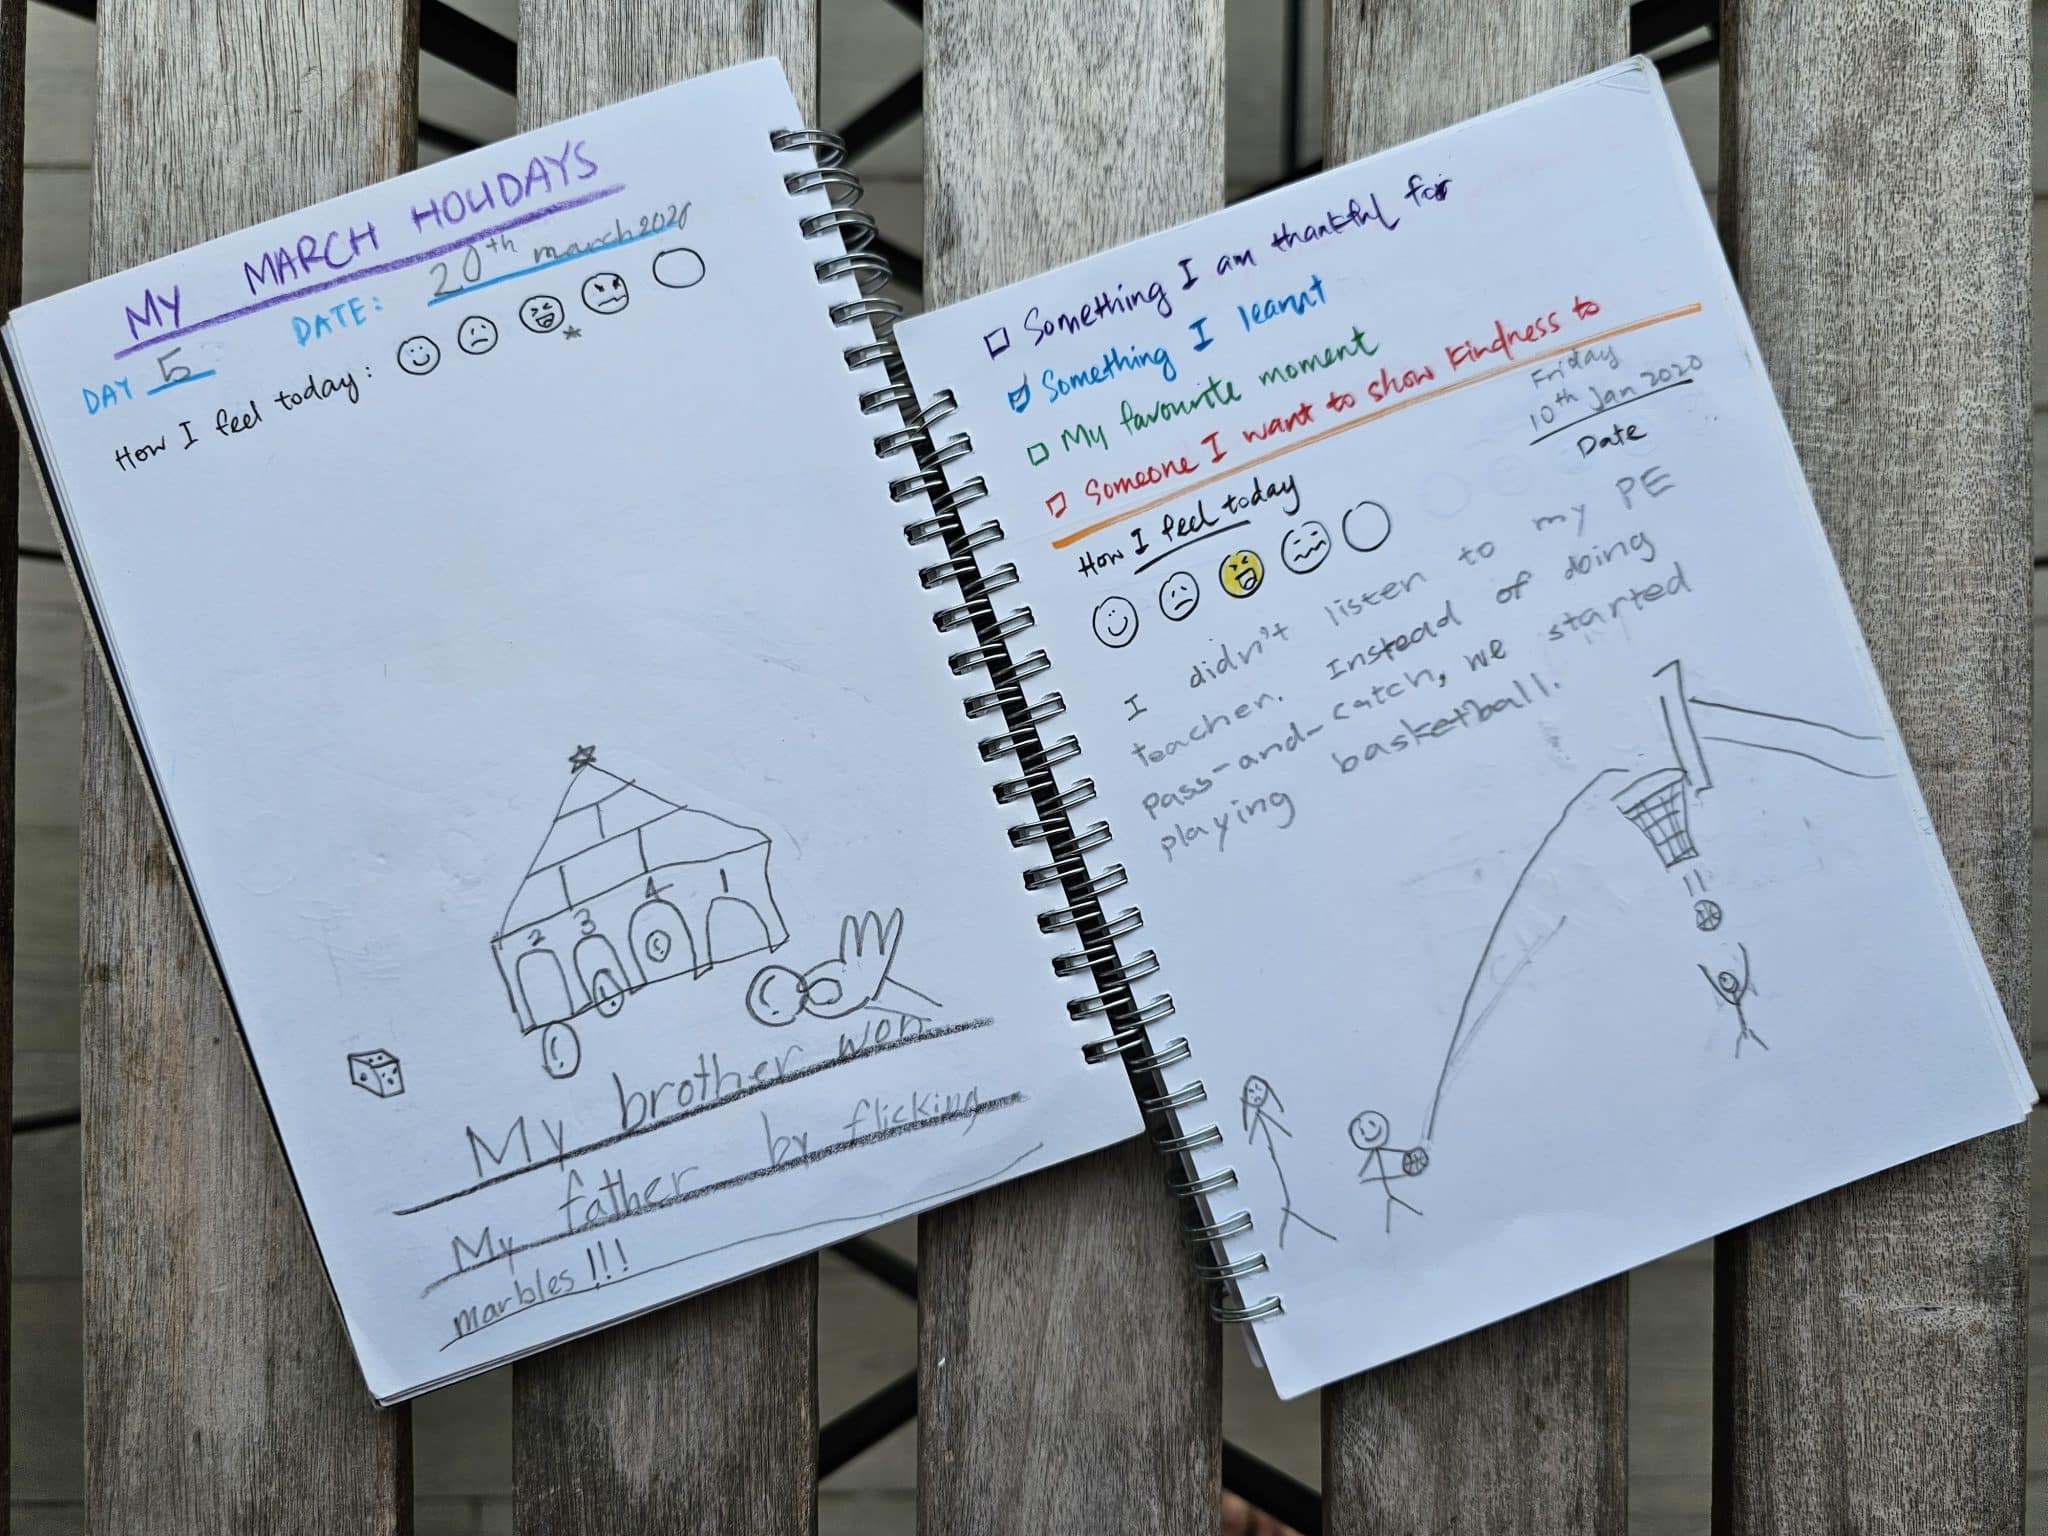 MY MARCH HOLIDAYS
DAY 5 DATE: 20th march 2020
How I feel today:
2 3 4 1
My brother won
My father by flicking
marbles!!!
Something I am thankful for
Something I learnt
My favourite moment
Someone I want to show kindness to
Friday
10th Jan 2020
Date
How I feel today
I didn't listen to my PE
teacher. Instead of doing
pass-and-catch, we started
playing basketball.